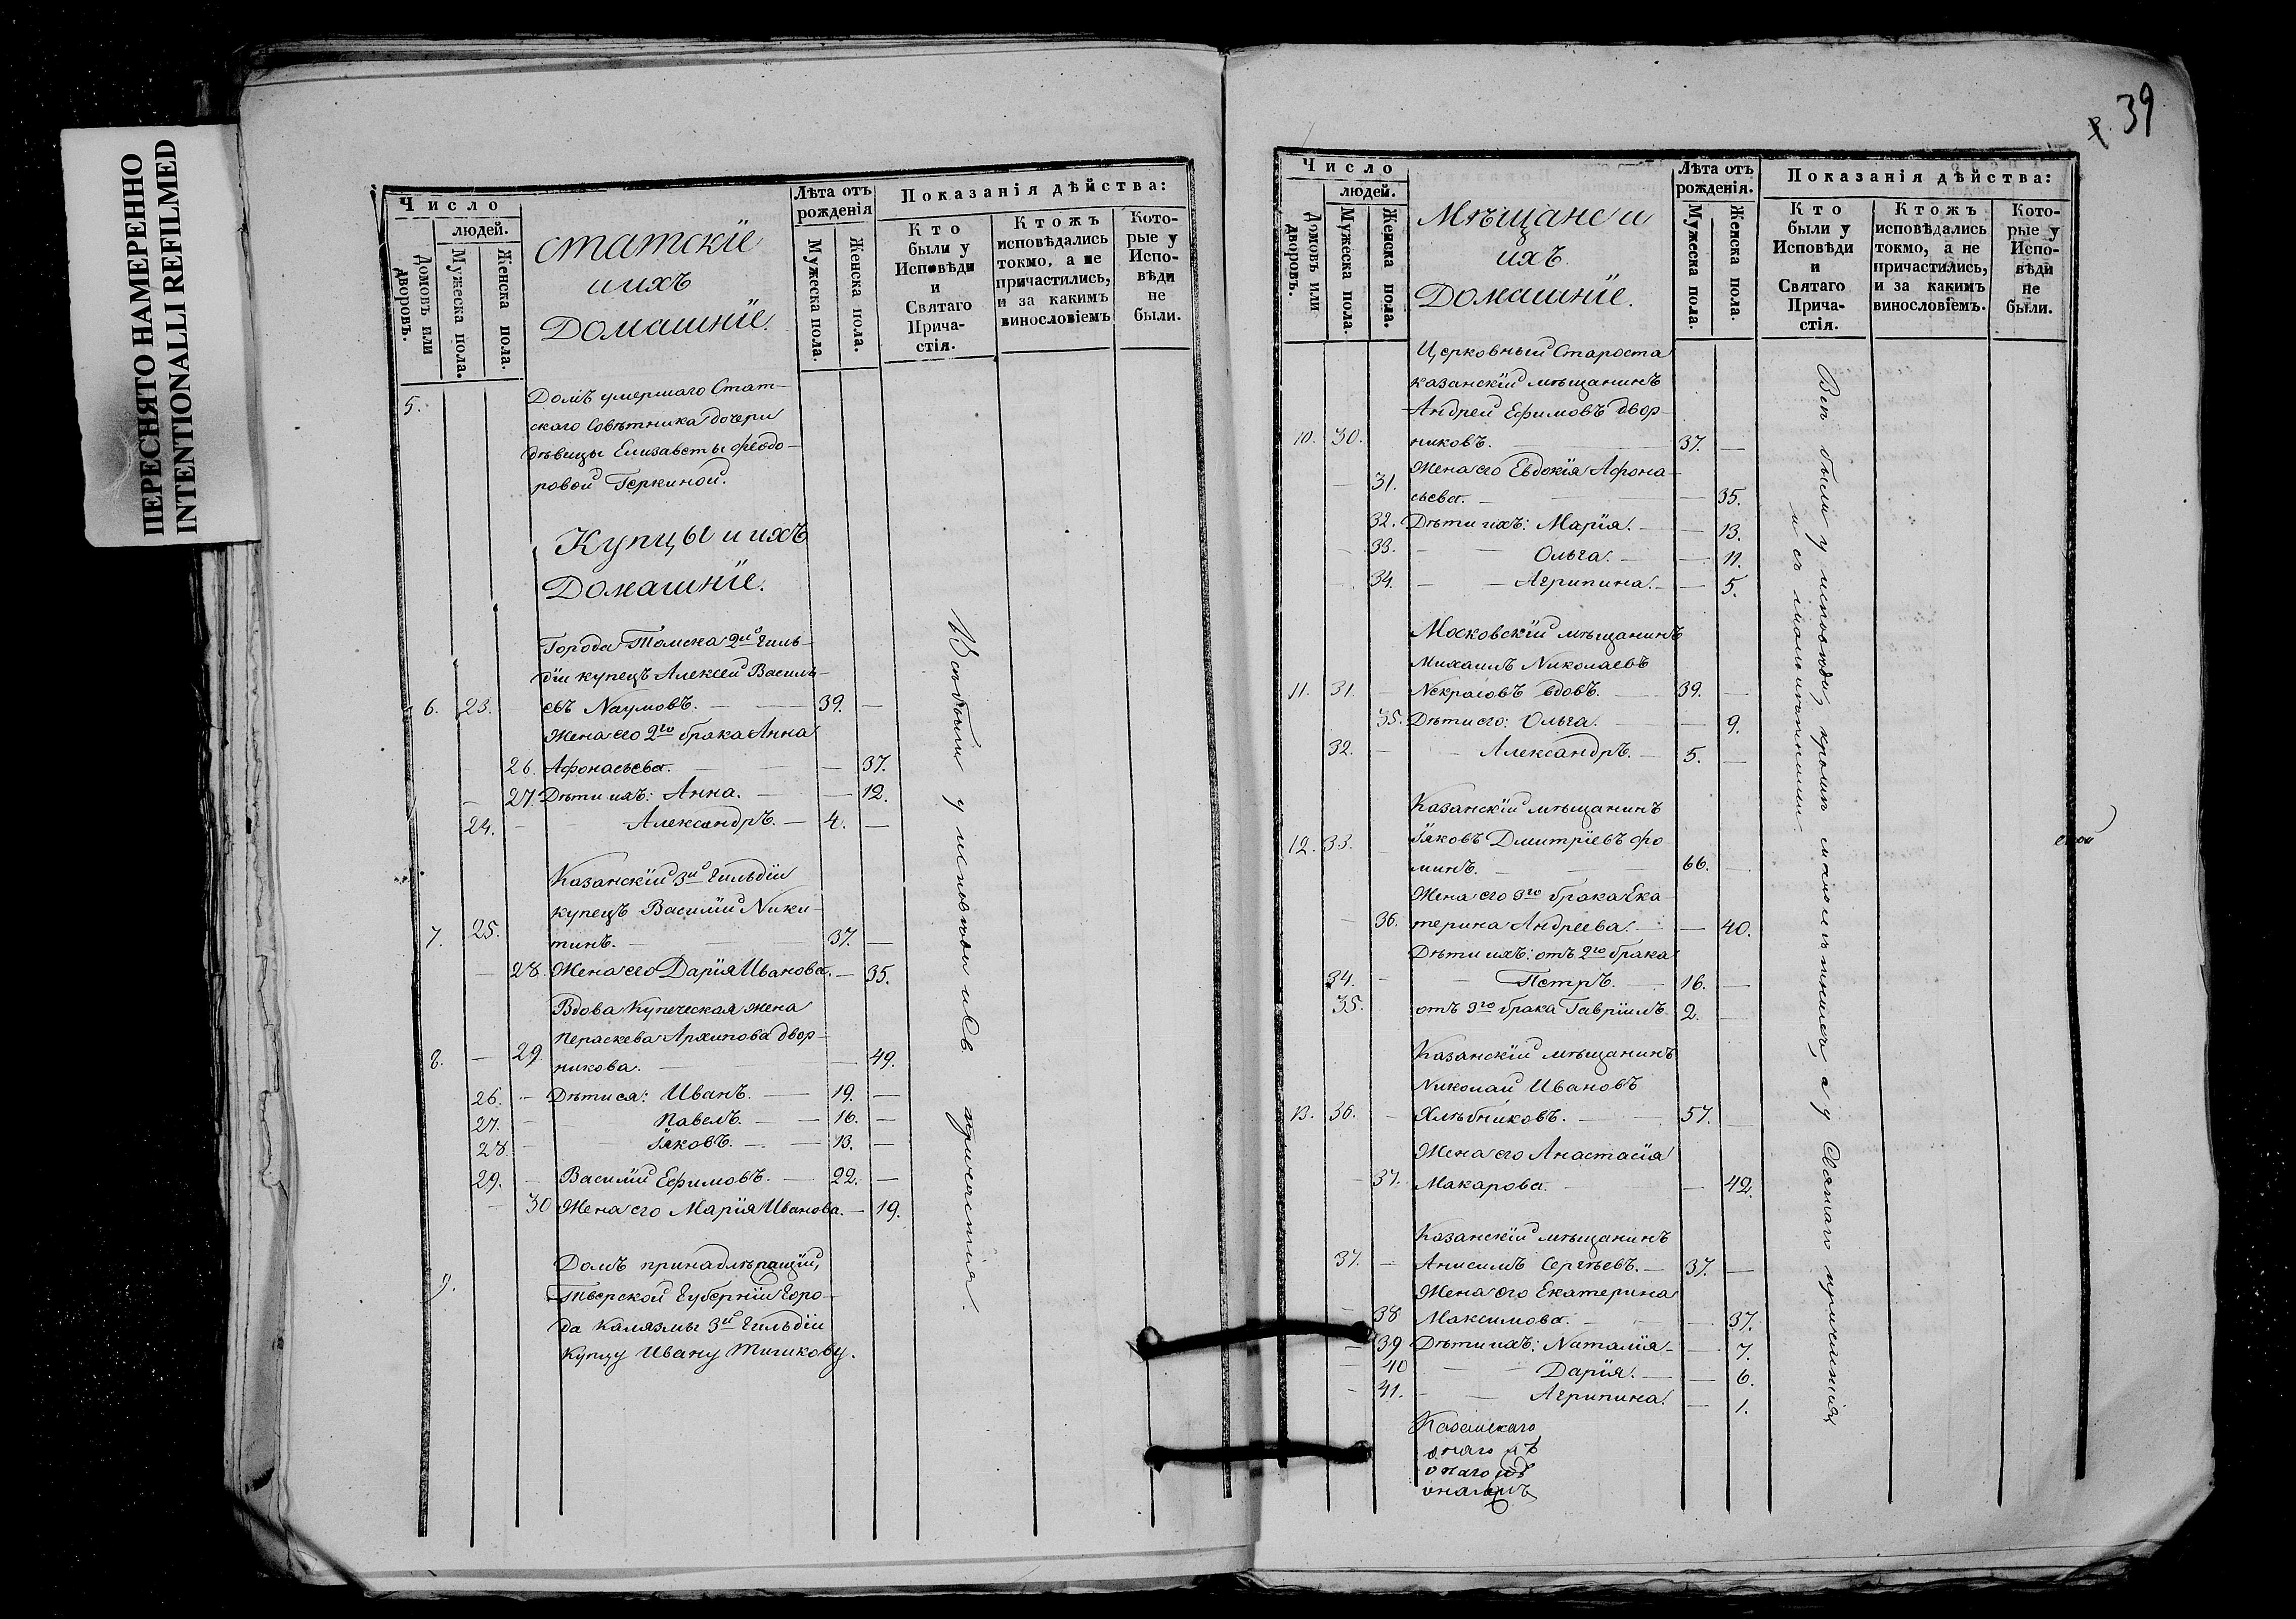 ПЕРЕСНЯТО НАМЕРЕННО
INTENTIONALLI REFILMED
Число
людей.
Домовъ или дворовъ.
Мужеска пола.
Женска пола.
Статскіе
и ихъ
Домашніе.
Лѣта отъ рожденія
Мужеска пола.
Женска пола.
Показанія дѣйства:
Кто были у Исповѣди и Святаго Прича-стія.
Ктожъ исповѣдались токмо, а не причастились, и за какимъ винословіемъ
Кото-рые у Испо-вѣди не были.
5. Домъ умершаго Стат-
скаго Совѣтника дочери
дѣвицы Елизаветы Ѳеодо-
ровой Геркиной.
Купцы и ихъ
Домашніе.
Города Томска 2й гиль-
діи купецъ Алексей Василь-
6. 23. евъ Наумовъ. — 39. —
Жена его 2го брака Анна
26. Афонасьева. — 37.
27. Дѣти ихъ: Анна. — 12.
24. — Александръ. — 4. —
Казанскій 3й гильдіи
купецъ Василій Ники-
7. 25. тинъ. — 37. —
— 28. Жена его Дарія Иванова. — 35.
Вдова Купеческая жена
Пераскева Архипова Двор-
8. — 29. никова. — 49.
26. — Дѣти ея: Иванъ. — 19. —
27. — Павелъ. — 16. —
28. — Іяковъ. — 13. —
29. — Василій Ефимовъ. — 22. —
— 30 Жена его Марія Иванова. — 19.
9. Домъ принадлѣжащій,
Тверской Губерніи Горо-
да Калязмы 3й гильдіи
Купцу Ивану Тичикову.
Всѣ были у исповѣди и Св. причастія.
39
Число
людей.
Домовъ или дворовъ.
Мужеска пола.
Женска пола.
Мѣщане и
ихъ
Домашніе.
Лѣта отъ рожденія.
Мужеска пола.
Женска пола.
Показанія дѣйства:
Кто были у Исповѣди и Святаго Прича-стія.
Ктожъ исповѣдались токмо, а не причастились, и за какимъ винословіемъ.
Кото-рые у Испо-вѣди не были.
Церковный Староста
казанскій мѣщанинъ
Андрей Ефимовъ Двор-
10. 30. никовъ. — 37. —
Жена его Евдокія Афона-
— 31. сьева. — 35.
32. Дѣти ихъ: Марія. — 13.
— 33. — Ольга. — 11.
34. — Агрипина. — 5.
Московскій мѣщанинъ
Михаилъ Николаевъ
11. 31. — Некрасовъ вдовъ. — 39. —
35. Дѣти его: Ольга. — 9.
32. — Александръ. — 5. —
Казанскій мѣщанинъ
12. 33. — Іяковъ Дмитріевъ Фо
минъ. — 66. —
Жена его 3го брака Ека-
— 36. терина Андреева. — 40.
Дѣти ихъ: отъ 2го брака
34. — Петръ. — 16. —
35. отъ 3го брака Гавріилъ. 2. —
Казанскій мѣщанинъ
Николай Ивановъ
13. 36. — Хлѣбниковъ. — 57. —
Жена его Анастасія
— 37. Макарова. — 42.
Казанскій мѣщанинъ
37. — Анисимъ Сергѣевъ. — 37. —
Жена его Екатерина
— 38 Максимова. — 37.
— 39 Дѣти ихъ: Наталія — 7.
— 40 — Дарія. — 6.
— 41. — Агрипина. — 1.
Казанскаго
Всѣ были у исповѣди, кромѣ малолѣтнихъ, а у Святаго причастія
и съ малолѣтними.